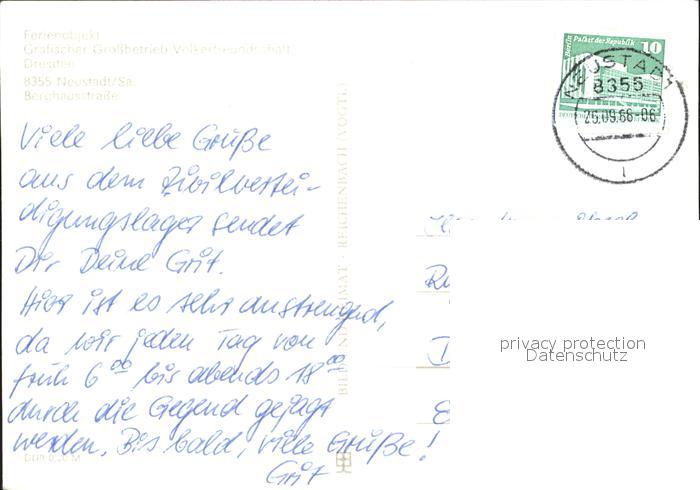 Ferienobjekt
Grafischer Großbetrieb Völkerfreundschaft
Dresden
8355 Neustadt/Sa.
Berghausstraße
Berlin Palast der Republik 10
NEUSTADT 1
8355
26.09.88-06
1
Viele liebe Grüße
aus dem Zivilvertei-
digungslager sendet
Dir Deine Grit.
Hier ist es sehr anstrengend,
da wir jeden Tag von
früh 6⁰⁰ bis abends 18⁰⁰
durch die Gegend gejagt
werden. Bis bald, viele Grüße!
Grit
BILD UND HEIMAT · REICHENBACH (VOGTL)
privacy protection
Datenschutz
DDR 0,20 M